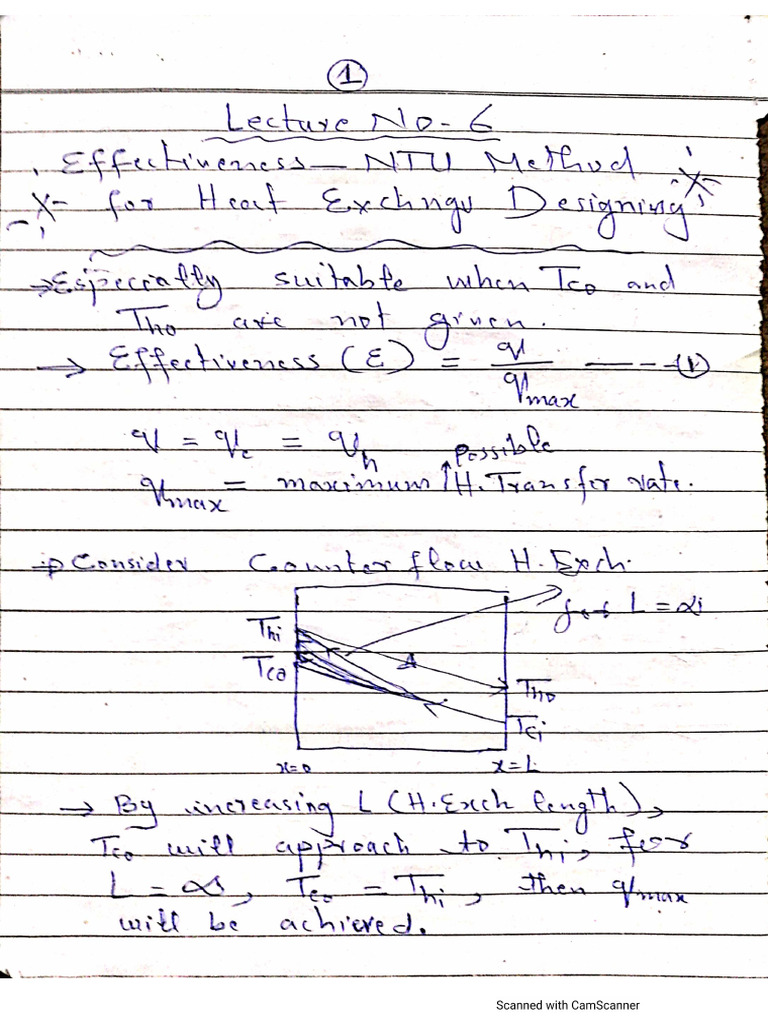 1
Lecture No-6
Effectiveness — NTU Method
for Heat Exchngv Designing
→ Especially suitable when Tco and
Tho are not given.
→ Effectiveness (ε) = q/qmax -----(1)
q = qc = qh
possible
qmax = maximum ↑ H. Transfer rate.
→ Consider Counter flow H. Exch.
for L = ∝
Thi
Tco
Tho
Tci
x=0 x=L
→ By increasing L (H. Exch length),
Tco will approach to Thi, for
L = ∝, Tco = Thi, then qmax
will be achieved.
Scanned with CamScanner